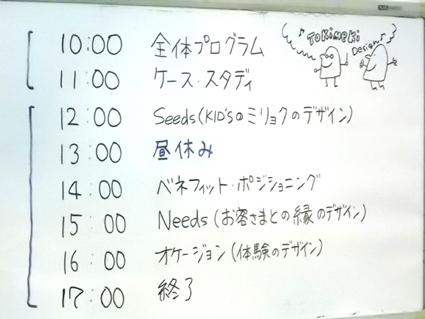 ♪TOKiMEKi
Design♪
10:00 全体プログラム
11:00 ケース・スタディ
12:00 Seeds(KID'sのミリョクのデザイン)
13:00 昼休み
14:00 ベネフィット・ポジショニング
15:00 Needs(お客さまとの縁のデザイン)
16:00 オケージョン(体験のデザイン)
17:00 終了